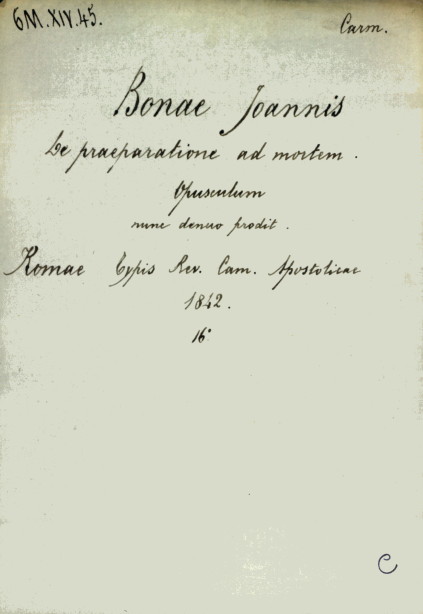 6M.XIV.45.
Carm.
Bonae Joannis
De praeparatione ad mortem.
Opusculum
nunc denuo prodit.
Romae Typis Rev. Cam. Apostolicae
1842.
16°
C